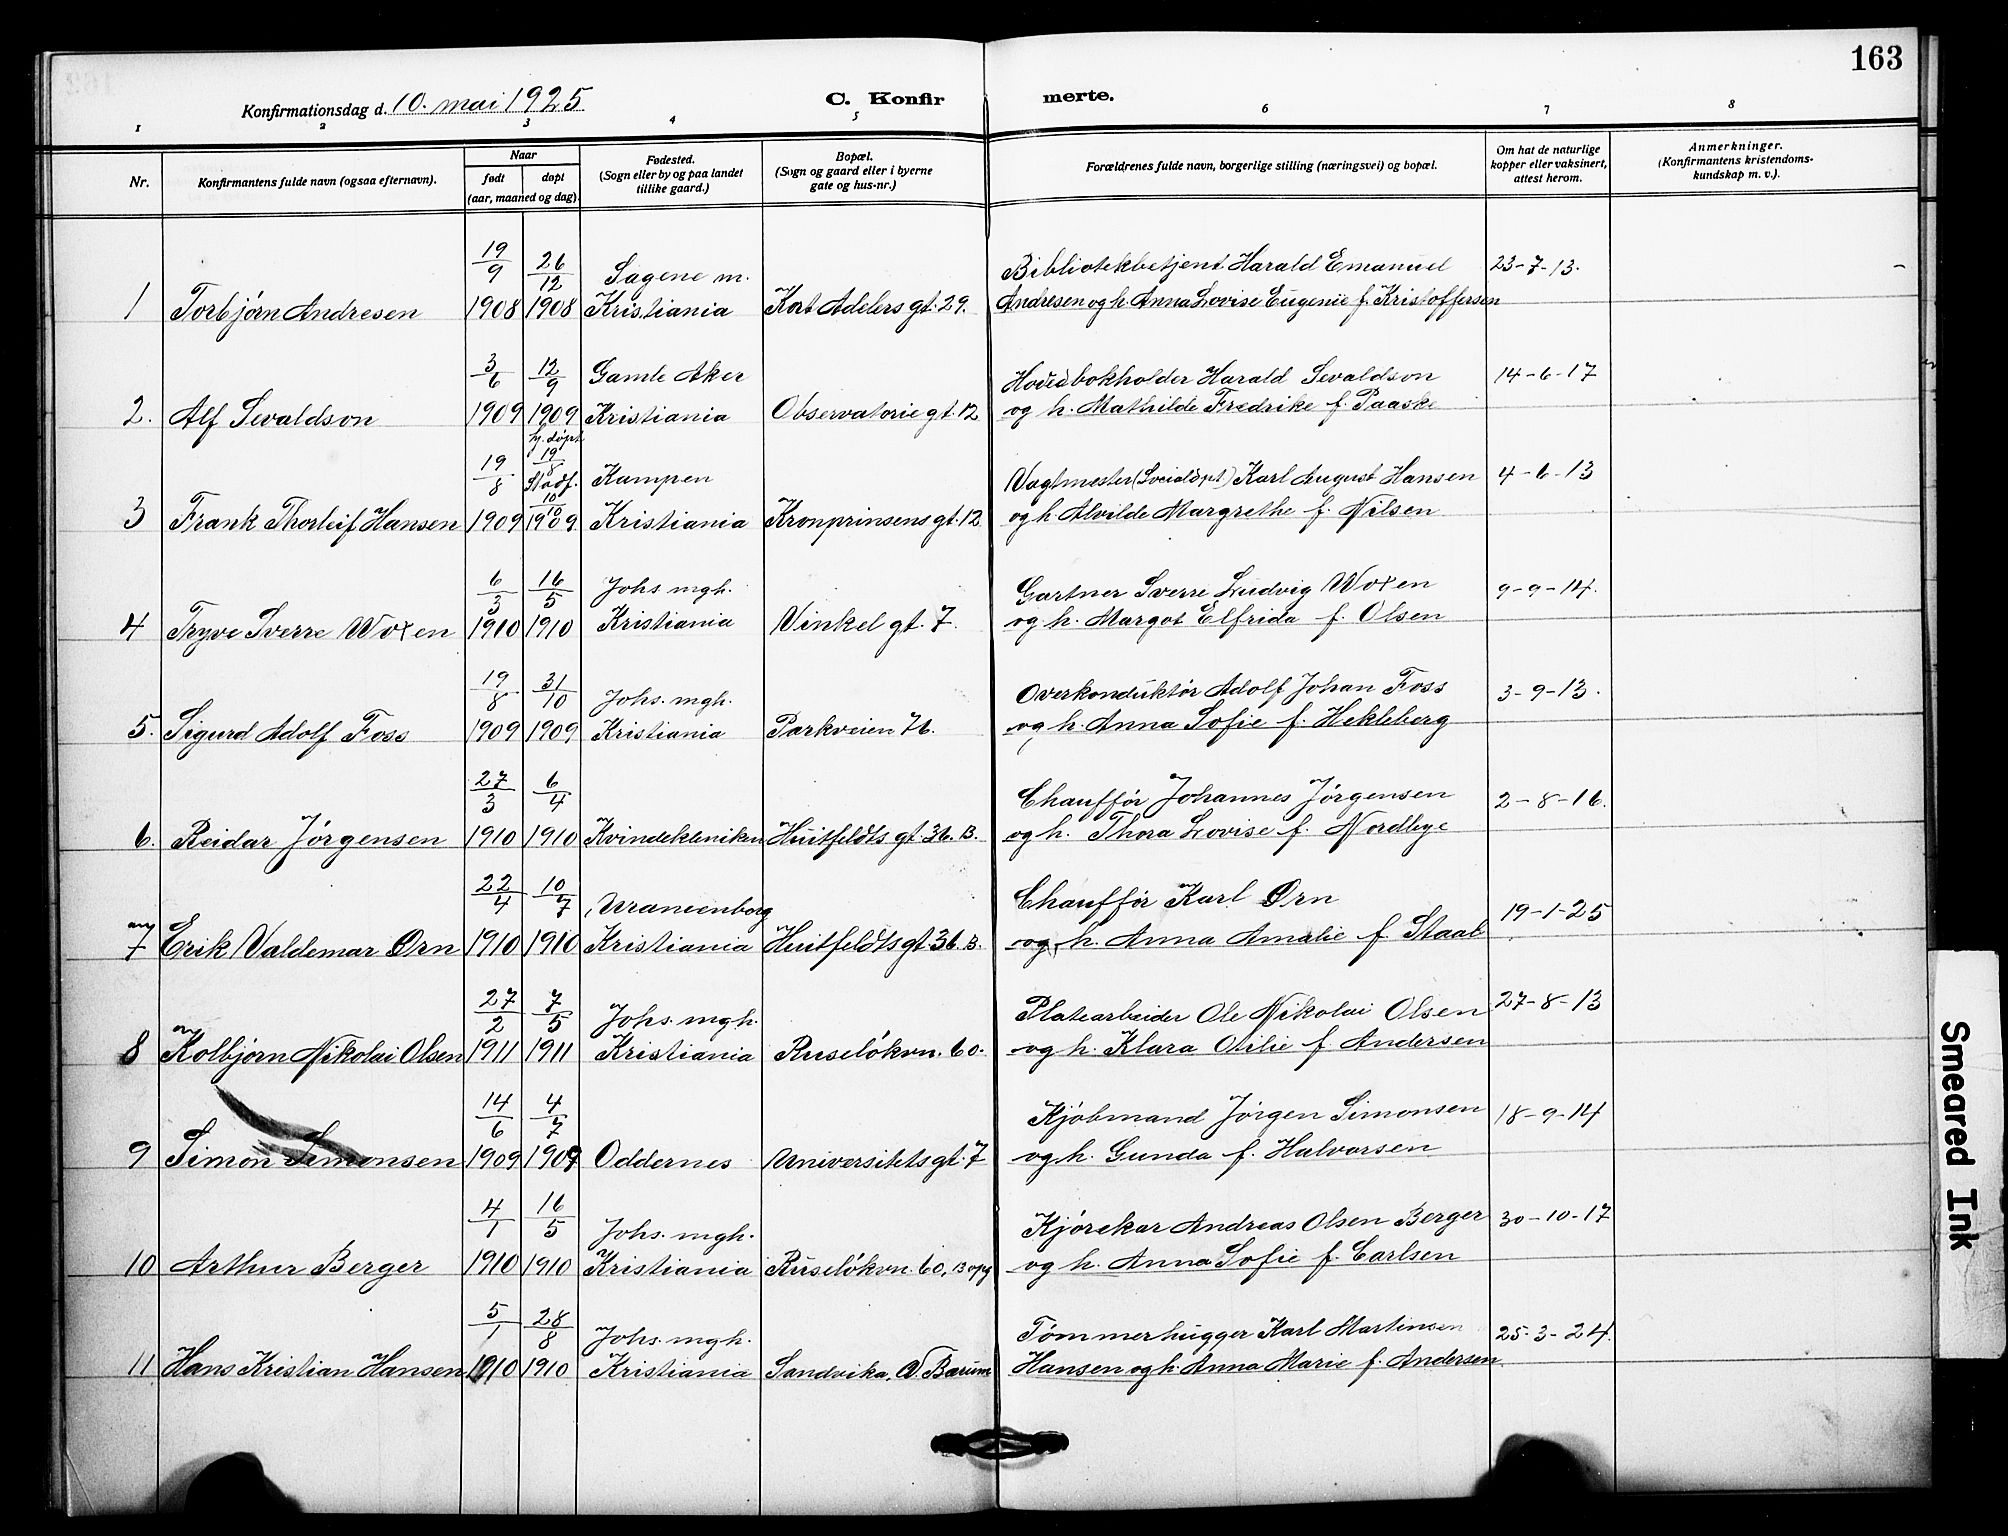 163
Konfirmationsdag d. 10. mai 1925
C. Konfirmerte.
1 2 3 4 5 6 7 8
Nr.
Konfirmantens fulde navn (ogsaa efternavn).
Naar
født døpt
(aar, maaned og dag)
Fødested.
(Sogn eller by og paa landet
tillike gaard.)
Bopæl.
(Sogn og gaard eller i byerne
gate og hus-nr.)
Forældrenes fulde navn, borgerlige stilling (næringsvei) og bopæl.
Om hat de naturlige
kopper eller vaksinert,
attest herom.
Anmerkninger.
(Konfirmantens kristendoms-
kundskap m. v.).
19/9 26/12 Sagene m. Bibliotekbetjent Harald Emanuel 23-7-13.
1 Torbjørn Andresen 1908 1908 Kristiania Kort Adelers gt. 29. Andresen og h. Anna Lovise Eugenie f. Kristoffersen
3/6 12/9 Gamle Aker Hovedbokholder Harald Sevaldson 14-6-17
2. Alf Sevaldson 1909 1909 Kristiania Observatorie gt. 12 og h. Mathilde Fredrike f. Paaske
hj. døpt
19/8 19/8 Kampen Vagtmester (Socialdpt.) Karl August Hansen 4-6-13
Stadf.
10/10
3 Frank Thorleif Hansen 1909 1909 Kristiania Kronprinsens gt. 12 og h. Alvilde Margrethe f. Nilsen
6/3 16/5 Johs. mgh. Gartner Sverre Ludvig Woxen 9-9-14.
4 Tryve Sverre Woxen 1910 1910 Kristiania Vinkel gt. 7. og h. Margot Elfrida f. Olsen
19/8 31/10 Johs. mgh. Overkonduktør Adolf Johan Foss 3-9-13.
5. Sigurd Adolf Foss 1909 1909 Kristiania Parkveien 76. og h. Anna Sofie f. Hekleberg
27/3 6/4 Chauffør Johannes Jørgensen 2-8-16.
6. Reidar Jørgensen 1910 1910 Kvindekliniken Huitfeldts gt. 36. B. og h. Thora Lovise f. Nordbye
22/4 10/7 Uranienborg Chauffør Karl Ørn 19-1-25
7 Erik Valdemar Ørn 1910 1910 Kristiania Huitfeldts gt. 36. B. og h. Anna Amalie f. Staal
27/2 7/5 Johs. mgh. Platearbeider Ole Nikolai Olsen 27-8-13
8 Kolbjørn Nikolai Olsen 1911 1911 Kristiania Ruseløkvn. 60. og h. Klara Otilie f. Andersen
14/6 4/7 Kjøbmand Jørgen Simonsen 18-9-14
9 Simon Simonsen 1909 1909 Oddernes Universitets gt. 7 og h. Gunda f. Halvorsen
4/1 16/5 Johs. mgh. Kjørekar Andreas Olsen Berger 30-10-17
10 Arthur Berger 1910 1910 Kristiania Ruseløkvn. 60, B opg og h. Anna Sofie f. Carlsen
5/1 28/8 Johs. mgh. Tømmerhugger Karl Martinsen 25-3-24.
11 Hans Kristian Hansen 1910 1910 Kristiania Sandvika, V. Bærum Hansen og h. Anna Marie f. Andersen
Smeared Ink